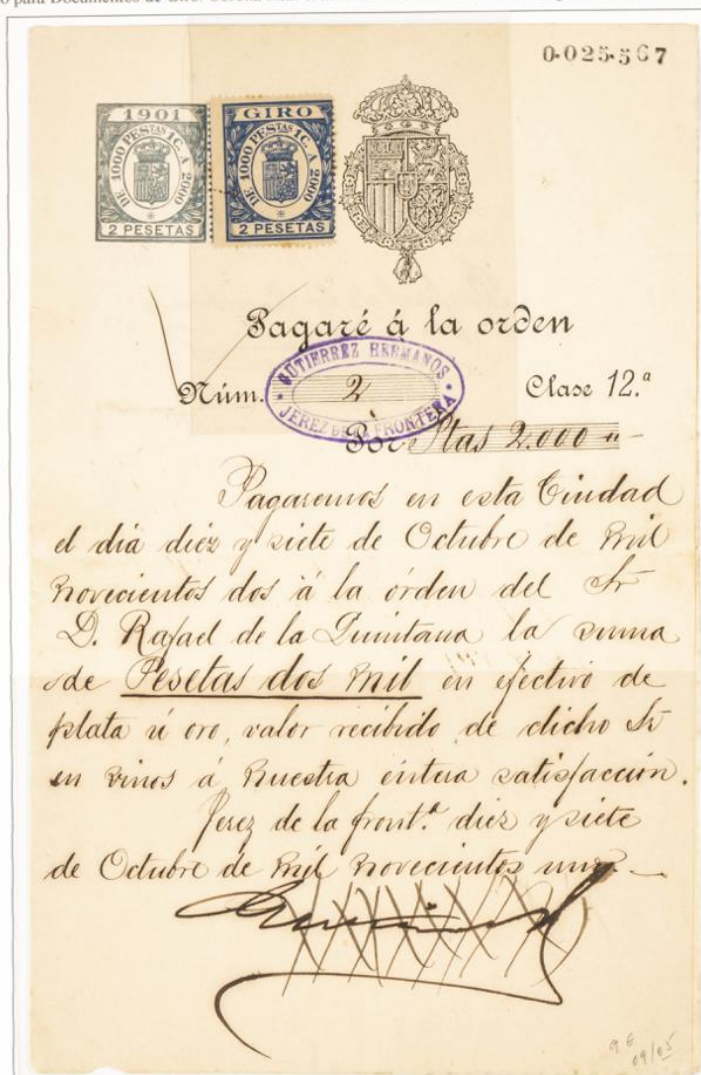 0.025.567
1901
DE 1000 PESTAS 1C. A 2000
2 PESETAS
GIRO
DE 1000 PESTAS 1C. A 2000
2 PESETAS
Pagaré á la orden
GUTIERREZ HERMANOS
Núm. 2 Clase 12.ª
JEREZ DE LA FRONTERA
Por Ptas 2.000 "
Pagaremos en esta Ciudad
el dia diéz y siete de Octubre de mil
novecientos dos á la órden del Sr
D. Rafael de la Quintana la suma
de Pesetas dos mil en efectivo de
plata ú oro, valor recibido de dicho Sr
en vinos á nuestra entera satisfacción.
Jerez de la front.ª diez y siete
de Octubre de mil novecientos uno.
09/05